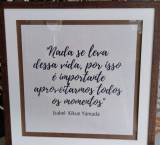 Nada se leva
dessa vida, por isso
é importante
aproveitarmos todos
os momentos"
Isabel Kikue Yamada